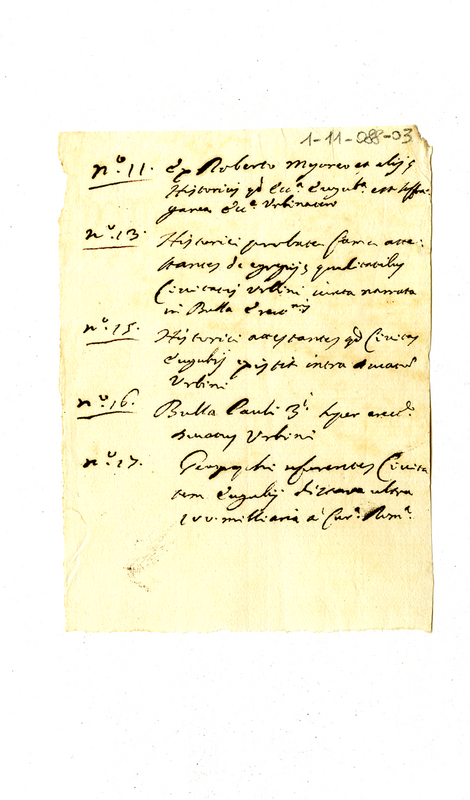 1-11-088-03
nº. 11. Ex Roberto et alijs
Historicis qd Ecc.ª Eugub.ª est suffra-
ganea Ecc.ª Urbinaten
nº. 13. Historici probatae famae atte-
stantes de egregijs qualitatibus
Civitatis Urbini iuxta narrata
in Bulla Erect.nis
nº. 15. Historici attestantes qd Civitas
Eugubij existit intra Ducatũ
Urbini
nº. 16. Bulla Pauli 3.i super erect.e
Ducatus Urbini
nº. 17. Geographi referentes Civita
tem Eugubij distare ultra
100. milliaria a Cur.ª Rom.ª